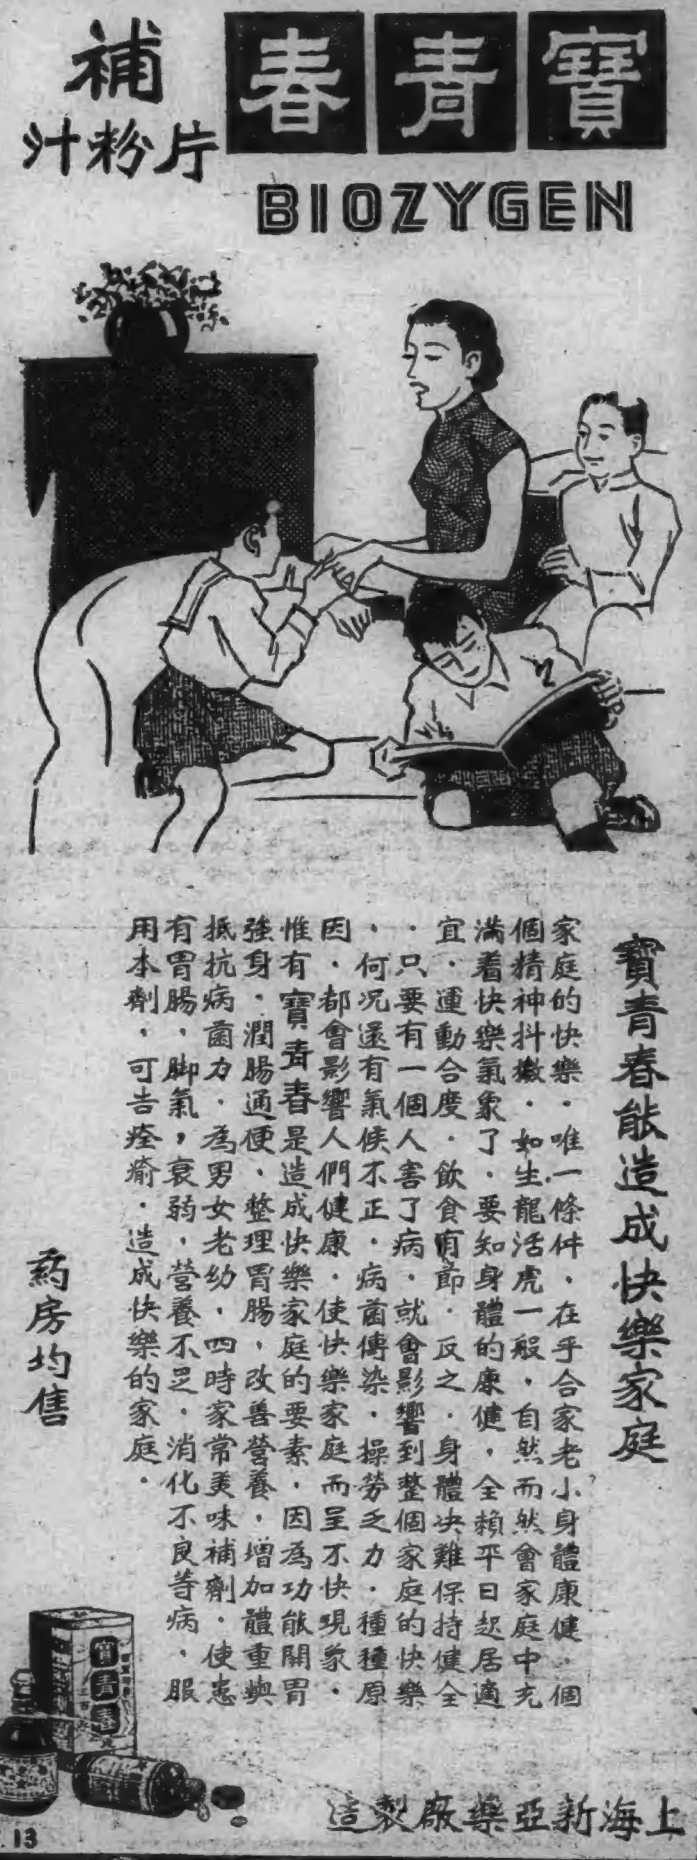 寶青春
補
片粉汁
BIOZYGEN
寶青春能造成快樂家庭
家庭的快樂．唯一條件．在乎合家老小身體康健．個
個精神抖擻．如生龍活虎一般．自然而然會家庭中充
滿着快樂氣象了．要知身體的康健．全賴平日起居適
宜．運動合度．飲食有節．反之．身體决難保持健全
．只要有一個人害了病．就會影響到整個家庭的快樂
．何況還有氣候不正．病菌傳染．操勞乏力．種種原
因．都會影響人們健康．使快樂家庭而呈不快現象．
惟有寶青春是造成快樂家庭的要素．因為功能開胃
強身．潤腸通便．整理胃腸．改善營養．增加體重與
抵抗病菌力．為男女老幼．四時家常美味補劑．使患
有胃腸．脚氣，衰弱．營養不足．消化不良等病．服
用本劑．可告痊瘉．造成快樂的家庭．
药房均售
寶青春
上海新亞藥廠製造
13